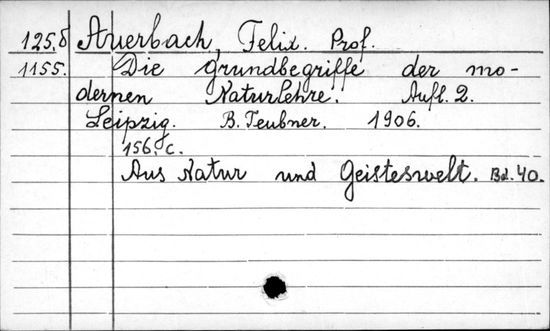 125,δ Auerbach, Felix. Prof.
1155. Die Grundbegriffe der mo-
dernen Naturlehre. Aufl. 2.
Leipzig. B. Teubner. 1906.
156, c.
Aus Natur und Geisteswelt. Bd. 40.